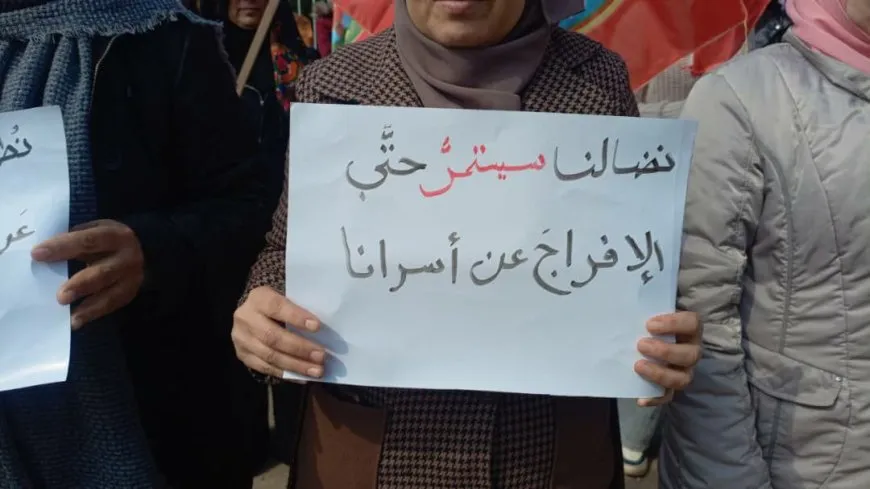 نضالنا سيستمرُّ حتَّى
الإفراجَ عن أسرانا